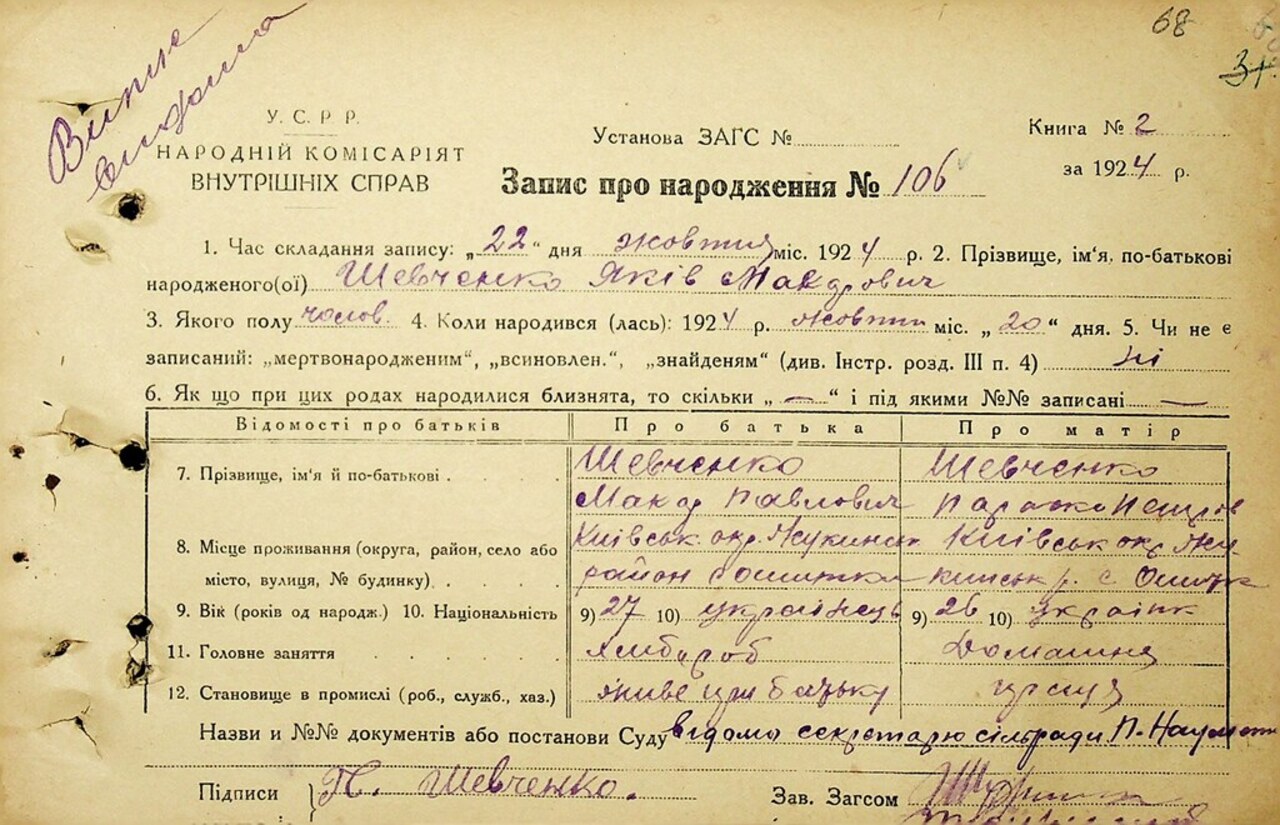 Випис
видана
68
31
У. С. Р. Р.
НАРОДНІЙ КОМІСАРІЯТ
ВНУТРІШНІХ СПРАВ
Установа ЗАГС №
Книга № 2
за 1924 р.
Запис про народження № 106
1. Час складання запису: „22“ дня жовтня міс. 1924 р. 2. Прізвище, ім'я, по-батькові
народженого(ої) Шевченко Яків Макарович
3. Якого полу чолов. 4. Коли народився (лась): 1924 р. жовтня міс. „20“ дня. 5. Чи не є
записаний: „мертвонародженим“, „всиновлен.“, „знайденям“ (див. Інстр. розд. III п. 4) ні
6. Як що при цих родах народилися близнята, то скільки „—“ і під якими №№ записані —
Відомості про батьків Про батька Про матір
7. Прізвище, ім'я й по-батькові Шевченко Шевченко
Макар Павлович Параска
8. Місце проживання (округа, район, село або Київськ окр. Київськ окр
місто, вулиця, № будинку) район р. с.
9. Вік (років од народж.) 10. Національність 9) 27 10) українець 9) 26 10) українк
11. Головне заняття хлібороб Домашня
12. Становище в промислі (роб., служб., хаз.) живе при батьку праця
Назви и №№ документів або постанови Суду відомо секретарю сільради
Підписи П. Шевченко. Зав. Загсом